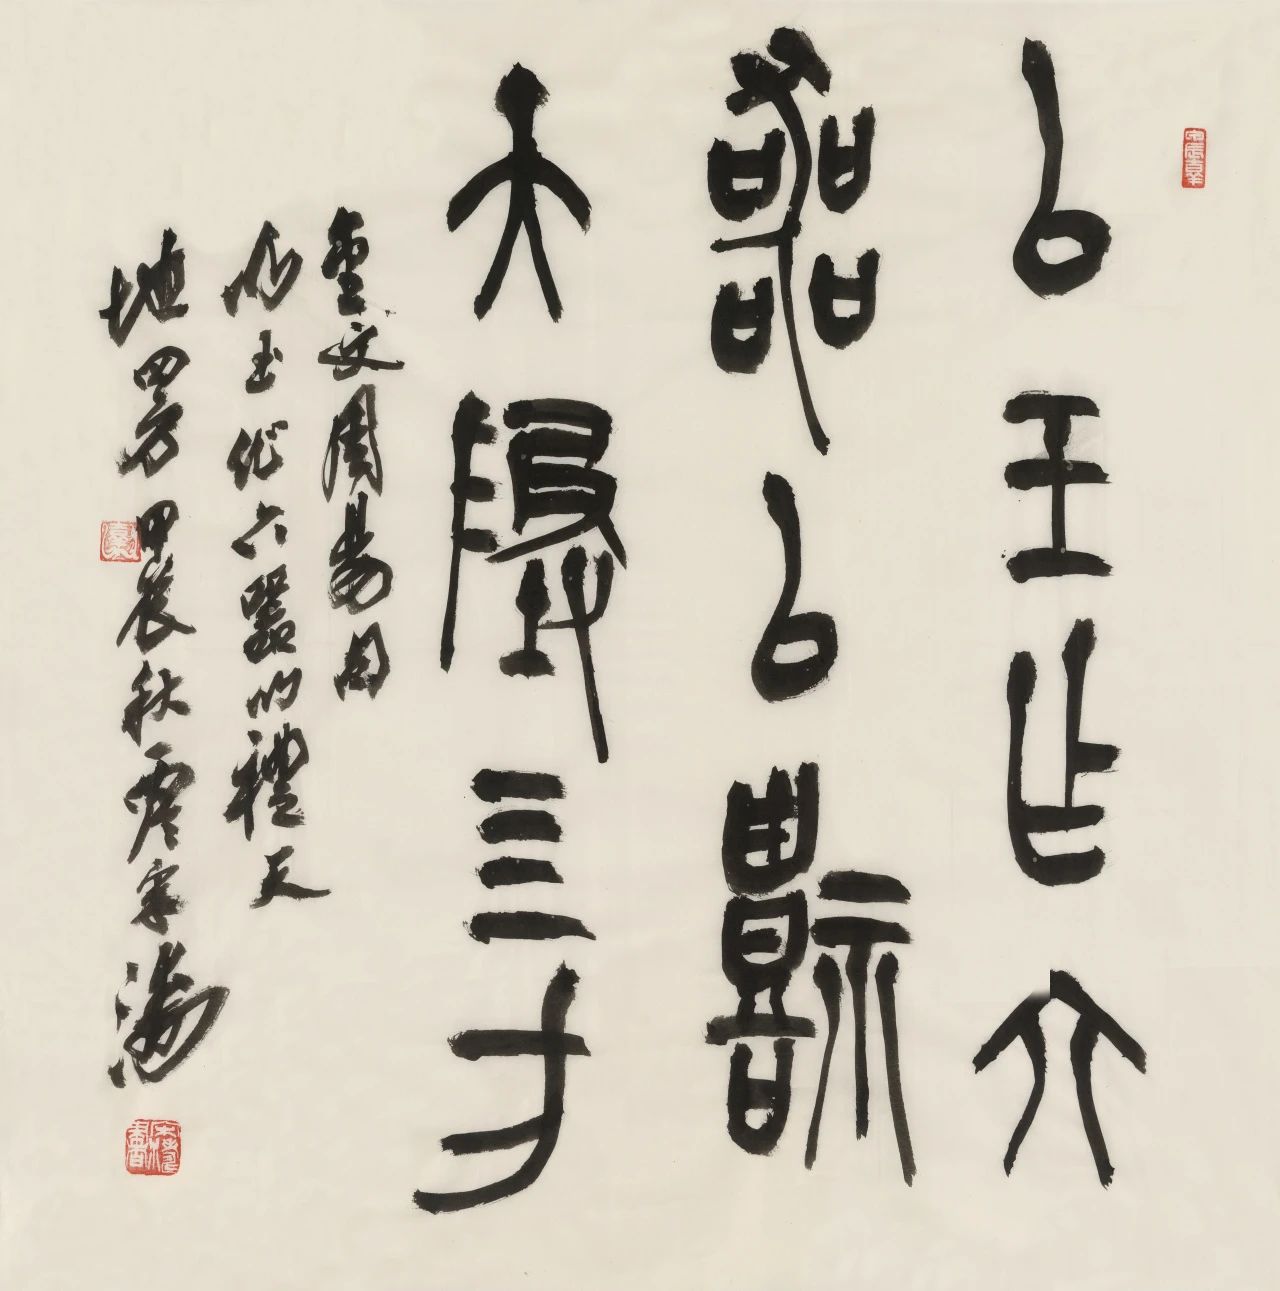 以玉作六
器以禮
天地四方
金文周易
以玉作六器以禮天
地四方甲辰秋宋濤